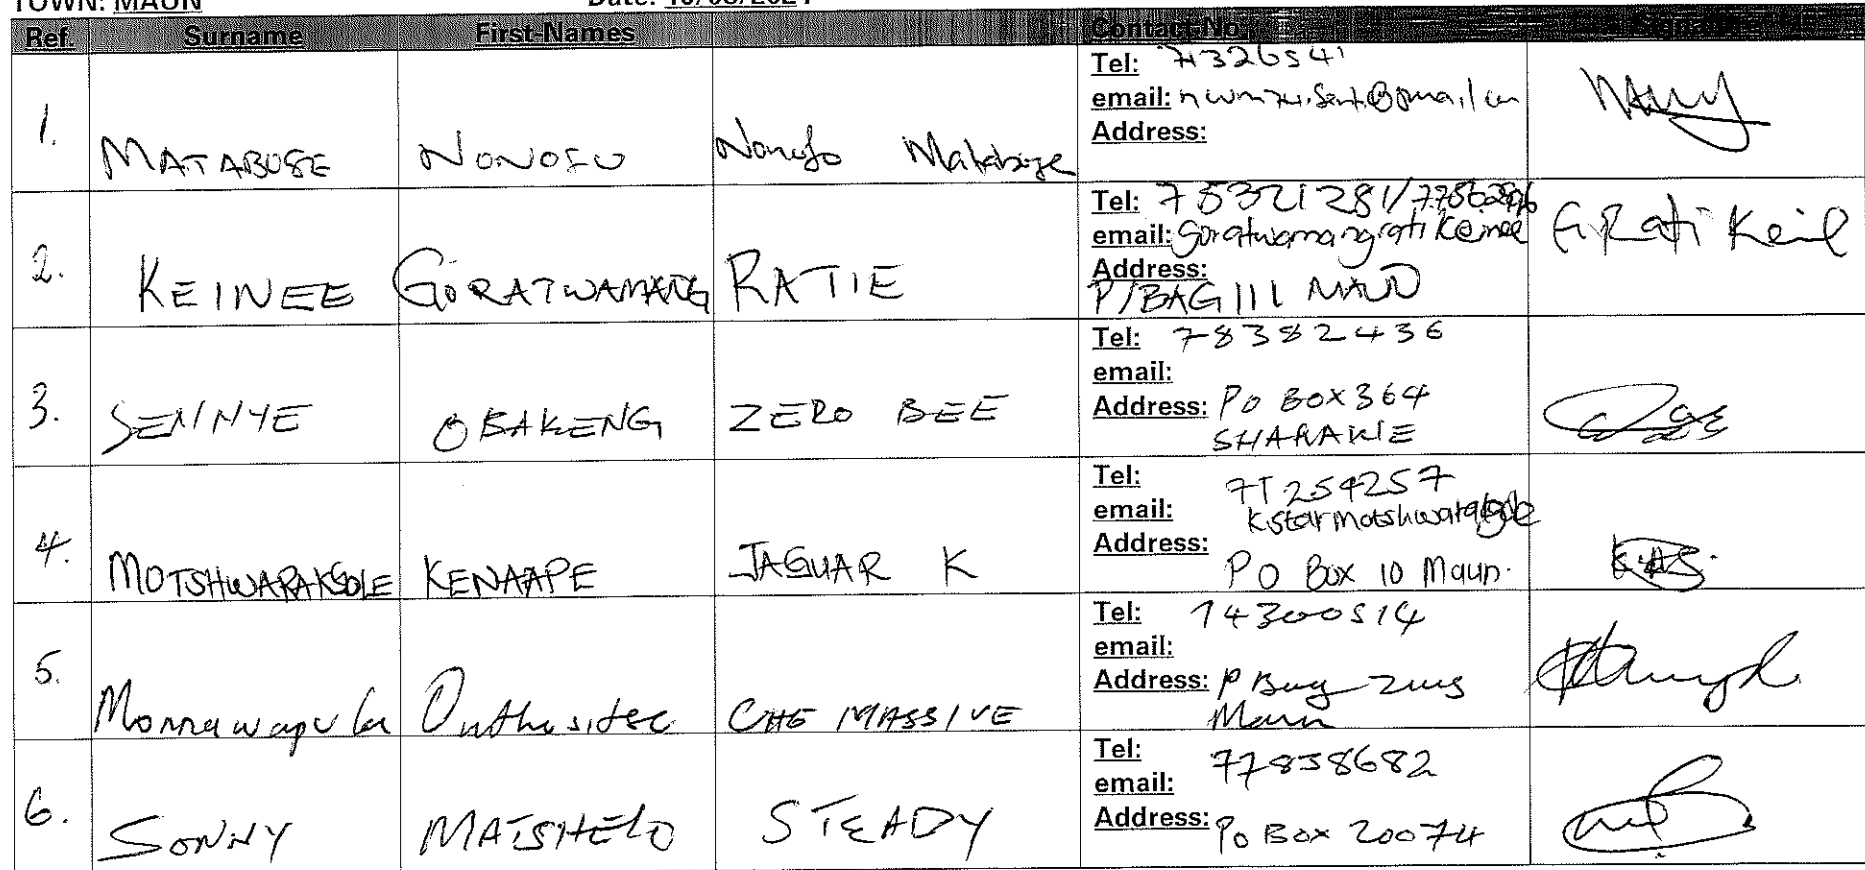 TOWN: MAUN Date: 10/08/2021
Ref. Surname First-Names Contact No. Signature
1. MATABOGE NONOFO Nonofo Mataboge
Tel: 71326541
email:
Address:
2. KEINEE GORATWAMANG RATIE
Tel: 75321281/
email: goratwamangratikeinee
Address:
P/BAG 111 MAUN
G Rati Kein
3. SENNYE OBAKENG ZERO BEE
Tel: 78382436
email:
Address: PO BOX 364
SHAKAWE
4. MOTSHWARAKGOLE KENAAPE JAGUAR K
Tel: 71254257
email: Kstarmotshwarakgole
Address:
PO Box 10 Maun.
5. Monnawapula Onthusitse CHE MASSIVE
Tel: 74300514
email:
Address: P Bag
Maun
6. SONNY MATSHELO STEADY
Tel: 77858682
email:
Address: Po Box 20074